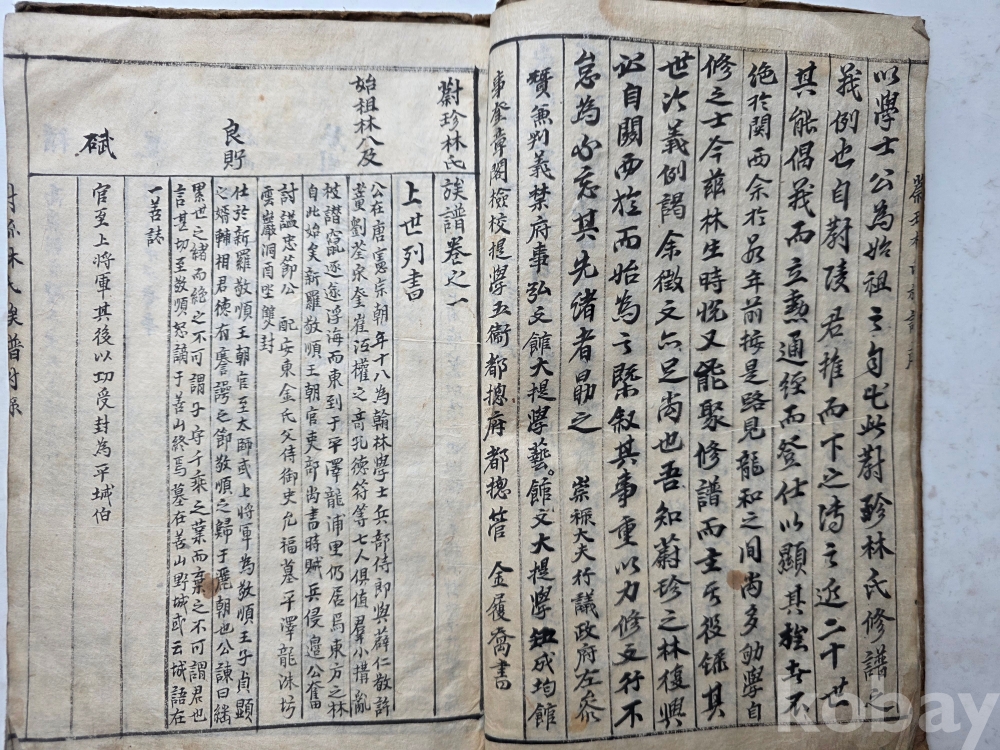 以學士公為始祖之自也此蔚珍林氏修譜之
義例也自蔚陵君推而下之溥之近二十世
其能偶義而立熱通經而登仕以顯其族者不
絶於関西余於前年前按是路見龍和之間尚多劬學自
修之士今茲林生時悅又能聚修譜而主其役録其
世次義例謁余徵文亦足尚也吾知蔚珍之林復興
於自關西於而始為之槩叙其事重以力修文行不
怠為勿忘其先緒者勗之 崇祿大夫行議政府左參
賛兼判義禁府事弘文館大提學藝文館大提學知成均館
事奎章閣檢校提學五衛都摠府都摠管 金履喬書
蔚珍林氏族譜卷之一
上世列書
始祖林八及
公在唐憲宗朝年十八為翰林學士兵部侍郎與薛仁敬許
董劉荃宋奎崔沍權之奇孔德符等七人俱值羣小搆亂
被譖竄逐遂浮海而東到于平澤龍浦里仍居焉東方之林
自此始矣新羅敬順王朝官吏部尚書時賊兵侵邊公奮
討謚忠節公 配安東金氏父侍御史允福墓平澤龍洙坊
雲巖洞酉坐雙封
良貯
仕於新羅敬順王朝官至太師或上將軍為敬順王子貞顯
之婿輔相君德有謇諤之節敬順之歸于麗朝也公諫曰繼
累世之緒而絶之不可謂子守千乘之業而棄之不可謂君也
言甚切至敬順怒謫于善山終焉墓在善山野城或云城語在
一善誌
樲
官至上將軍其後以功受封為平城伯
kobay